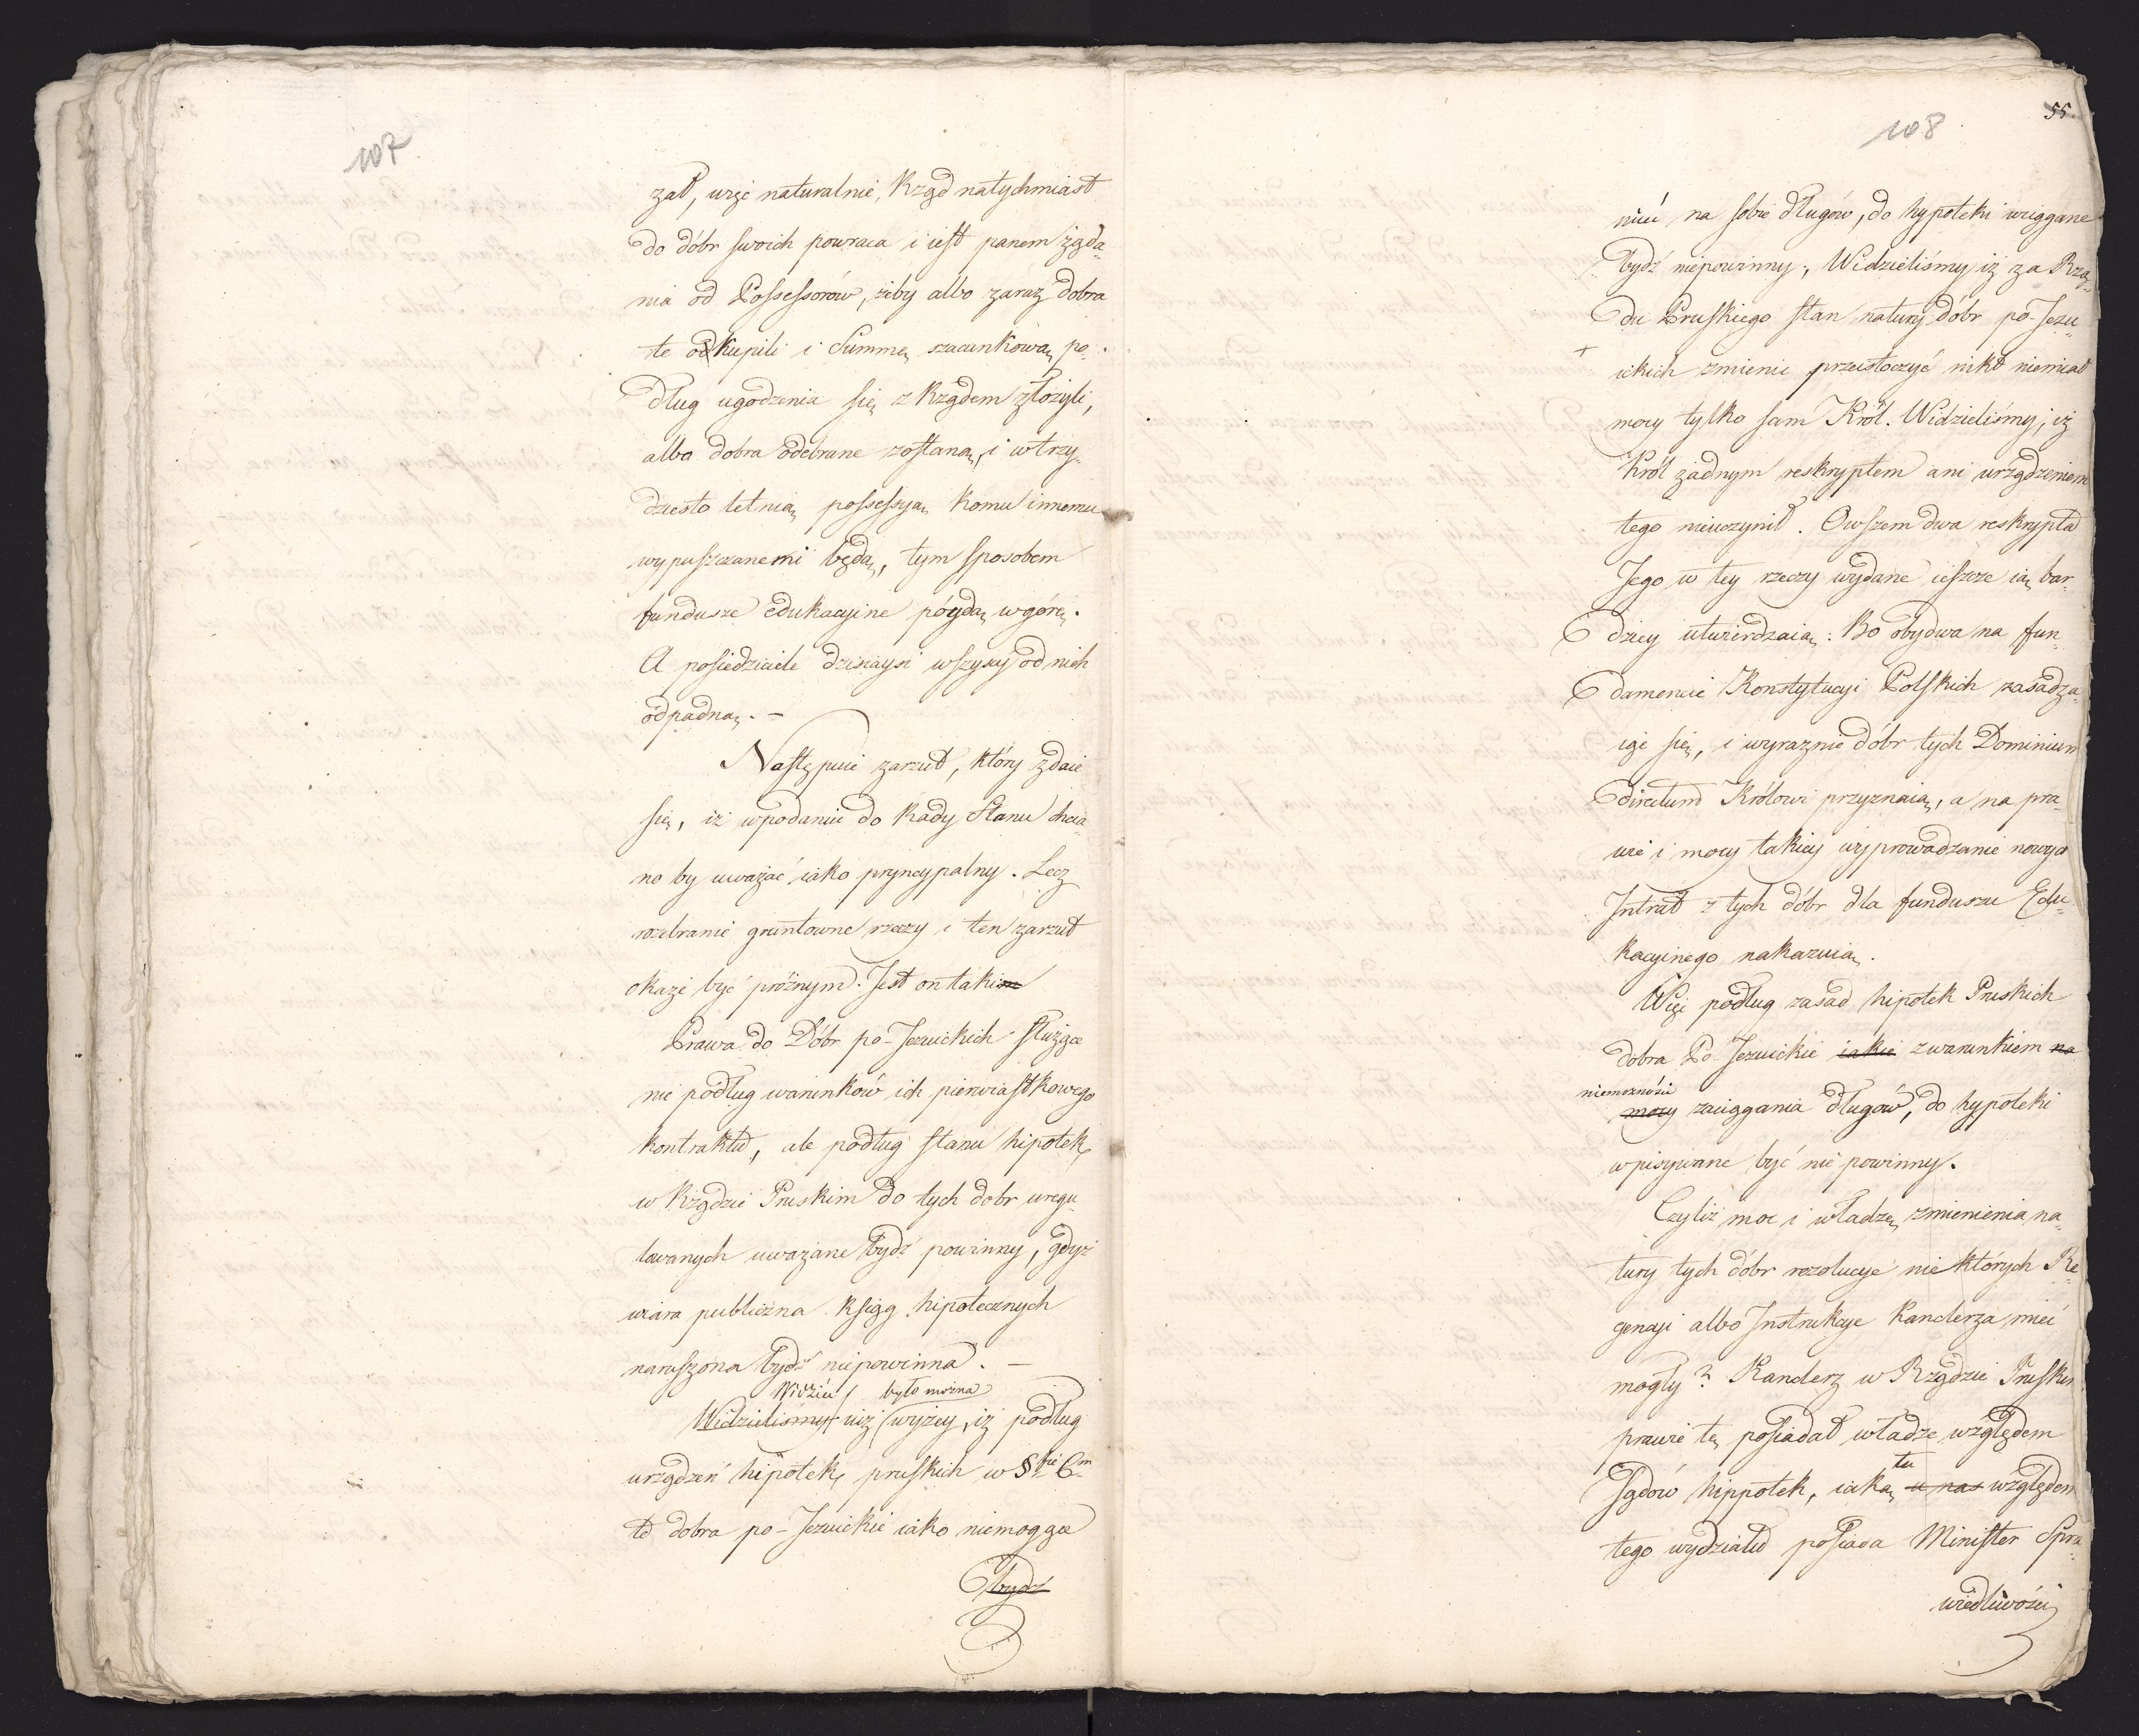 107
zał, więc naturalnie, Rząd natychmiast
do dóbr swoich powraca i iest panem żąda„
nia od Possessorów, żeby albo zaraz dobra
te odkupili i Summę szacunkową po„
dług ugodzenia się z Rządem złożyli,
albo dobra odebrane zostaną, i w trzy„
dziesto letnią possessyą komu innemu
wypuszczanemi będą, tym sposobem
fundusze edukacyine póydą w górę.
A posiedziciele dzisieysi wszyscy od nich
odpadną. –
Następuie zarzut, który zdaie
się, iż w podaniu do Rady Stanu chcia„
no by uważać iako pryncypalny. Lecz
rozebranie gruntowne rzeczy i ten zarzut
okaże być próżnym. Jest on taki
Prawa do Dóbr po-Jezuickich służące
nie podług warunków ich pierwiastkowego
kontraktu, ale podług stanu hipotek,
w Rządzie Pruskim do tych dobr uregu„
lowanych uważane bydź powinny, gdyż
wiara publiczna ksiąg hipotecznych
naruszona bydź niepowinna. –
Widzieć było można
Widzieliśmy iuż wyżey, iż podług
urządzeń hipotek, pruskich w §hie 6m
te dobra po-Jezuickie iako niemogące
bydź
108
55.
mieć na sobie długów, do hypoteki wciągane
bydź niepowinny. Widzieliśmy iż za Rzą„
du Pruskiego stan natury dóbr po-Jezu„
ickich zmienic przeistoczyć nikt niemiał
mocy tylko sam Król. Widzieliśmy, iż
Król żadnym reskryptem ani urządzeniem
tego nieuczynił. Owszem dwa reskrypta
Jego w tey rzeczy wydane ieszcze ią bar„
dziey utwierdzaią: Bo obydwa na fun„
damencie Konstytucyi Polskich zasadza„
ią się, i wyraznie dóbr tych Dominium
directum Królowi przyznaią, a na pra„
wie i mocy takiey wyprowadzanie nowych
Intrat z tych dóbr dla funduszu Edu„
kacyinego nakazuią.
Więc podług zasad hipotek Pruskich
dobra Po-Jezuickie iakie z warunkiem na
niemożności
mocy zaciągania długów, do hypoteki
wpisywane być nie powinny.
Czyliż moc i władzę zmienienia na„
tury tych dóbr rezolucye nie których Re„
gencyi albo Instrukcye Kanclerza mieć
mogły? Kanclerz w Rządzie Pruskim
prawie tę posiadał władze względem
tu
Sądów hippotek, iaką u nas względem
tego wydziału posiada Minister Spra„
wiedliwości